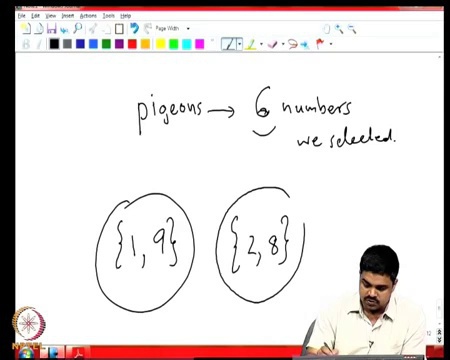 File Edit View Insert Actions Tools Help
Page Width
pigeons → 6 numbers
we selected.
{1, 9} {2, 8}